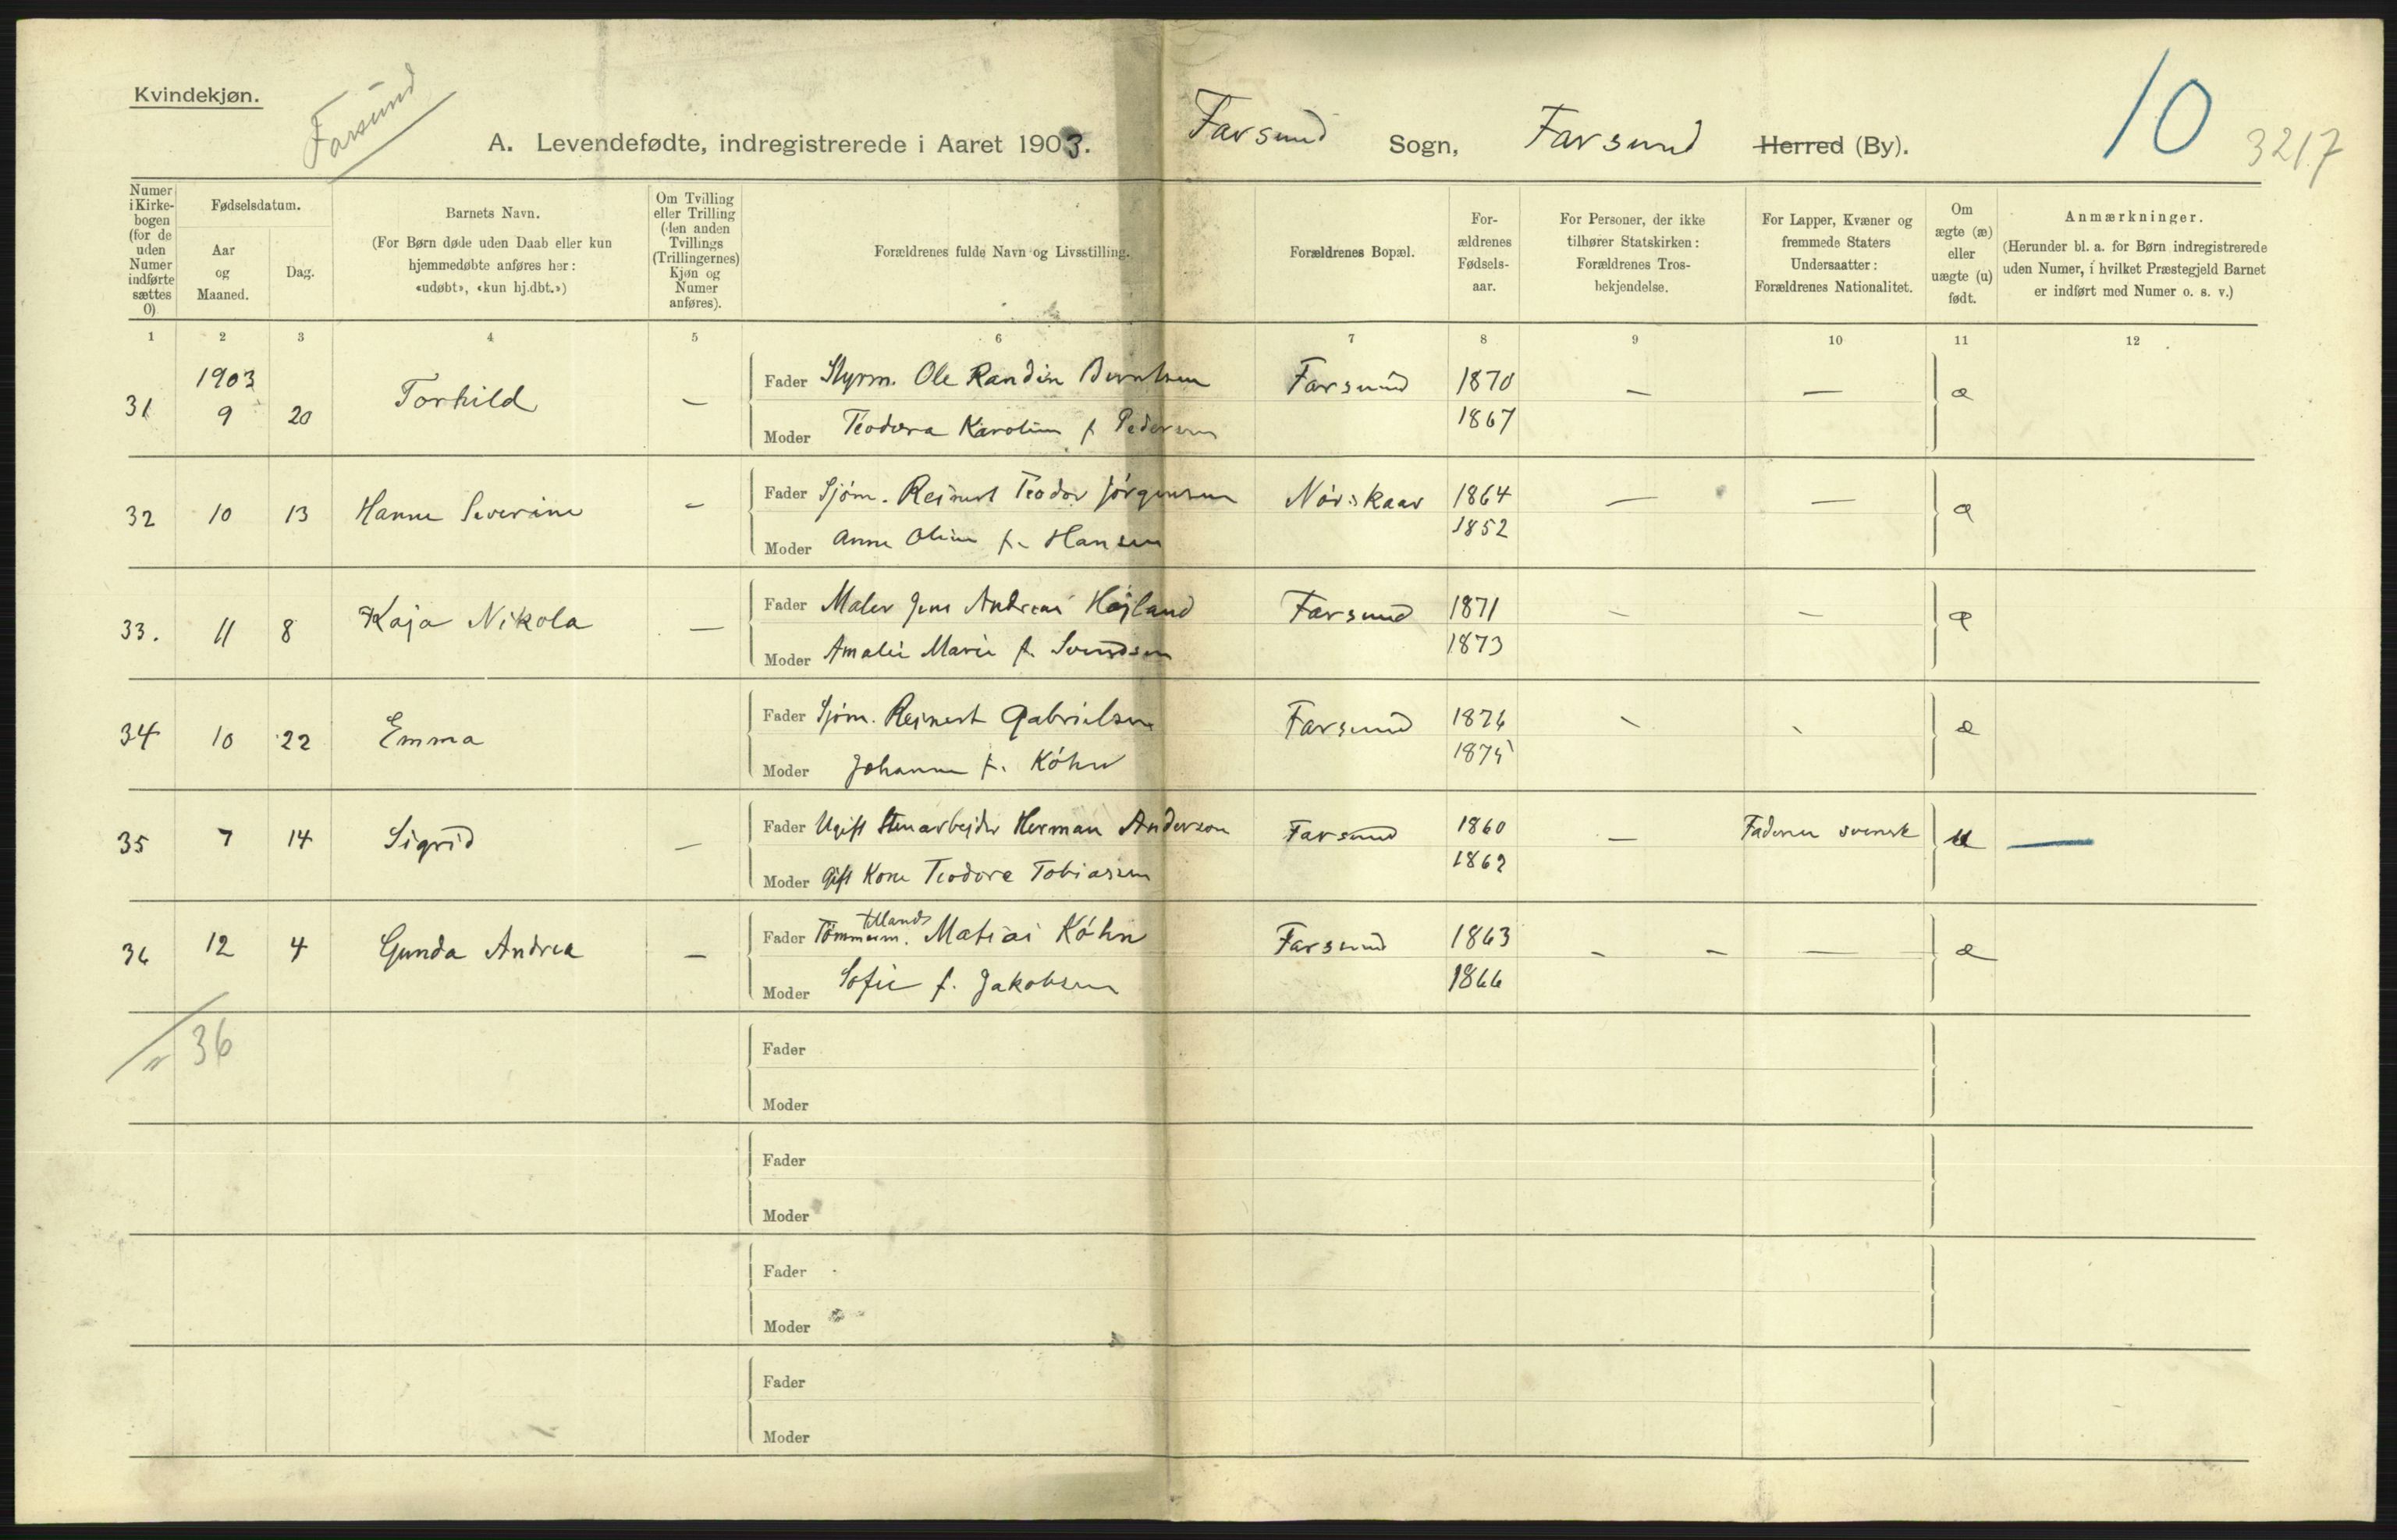 Kvindekjøn.
Farsund
A. Levendefødte, indregistrerede i Aaret 1903.
Farsund Sogn, Farsund Herred (By).
10
3217
Numer i Kirkebogen (for de uden Numer indførte sættes 0)
Fødselsdatum.
Aar og Maaned.
Dag.
Barnets Navn.
(For Børn døde uden Daab eller kun hjemmedøbte anføres her: «udøbt», «kun hj.dbt.»)
Om Tvilling eller Trilling (den anden Tvillings (Trillingernes) Kjøn og Numer anføres).
Forældrenes fulde Navn og Livsstilling.
Forældrenes Bopæl.
Forældrenes Fødselsaar.
For Personer, der ikke tilhører Statskirken: Forældrenes Trosbekjendelse.
For Lapper, Kvæner og fremmede Staters Undersaatter: Forældrenes Nationalitet.
Om ægte (æ) eller uægte (u) født.
Anmærkninger.
(Herunder bl. a. for Børn indregistrerede uden Numer, i hvilket Præstegjeld Barnet er indført med Numer o. s. v.)
1 2 3 4 5 6 7 8 9 10 11 12
1903
31 9 20 Torhild — Fader Styrm. Ole Randin Berntsen Farsund 1870 — — æ
Moder Teodora Karoline f. Pedersen 1867
32 10 13 Hanne Severine — Fader Sjøm. Reinert Teodor Jørgensen Nørskaar 1864 — — æ
Moder Anne Oline f. Hansen 1852
33. 11 8 Kaja Nikola — Fader Maler Jens Andreas Højland Farsund 1871 — — æ
Moder Amalie Marie f. Svendsen 1873
34 10 22 Emma Fader Sjøm. Reinert Gabrielsen Farsund 1876 — — æ
Moder Johanne f. Köhn 1875
35 7 14 Sigrid — Fader Ugift Stenarbejder Herman Anderson Farsund 1860 — Faderen svensk u —
Moder Gift Kone Teodore Tobiasen 1862
36 12 4 Gunda Andrea — Fader Tømmerm. tillands Matias Köhn Farsund 1863 — — — æ
Moder Sofie f. Jakobsen 1866
36
Fader
Moder
Fader
Moder
Fader
Moder
Fader
Moder